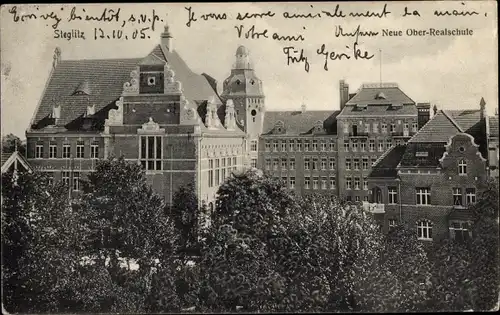 Ecrivez bientôt, s.v.p. Je vous serre amicalement la main,
Votre ami
Fritz Gericke
Steglitz 13.10.05
Neue Ober-Realschule